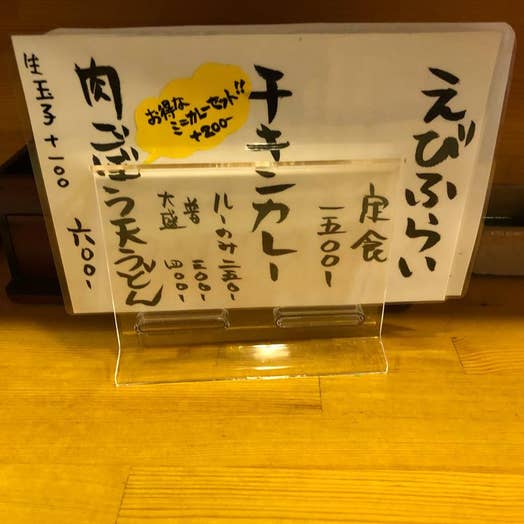 えびふらい
定食
一五〇〇-
チキンカレー
ルーのみ 二五〇-
普 三〇〇-
大盛 四〇〇-
お得な
ミニカレーセット!!
+200-
肉ごぼう天うどん
六〇〇-
生玉子 +一〇〇